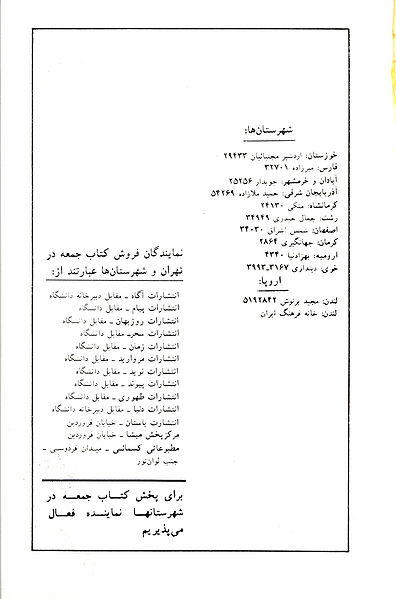 شهرستان‌ها:
خوزستان: اردشیر مجتبائیان ۲۹۴۳۳
فارس: میرزاده ۳۲۷۰۱
آبادان و خرمشهر: جویدار ۲۵۲۵۶
آذربایجان شرقی: حمید ملازاده ۵۴۲۶۹
کرمانشاه: متکی ۲۴۱۳۰
رشت: جمال حیدری ۳۴۹۴۹
اصفهان: شمس اشراق ۳۴۰۳۰
کرمان: جهانگیری ۲۸۶۴
ارومیه: بهزادنیا ۴۳۴۰
خوی: دینداری ۳۱۶۷-۳۹۹۳
اروپا:
لندن: مجید برنوش ۵۱۹۲۸۴۲
لندن: خانه فرهنگ ایران
نمایندگان فروش کتاب جمعه در
تهران و شهرستان‌ها عبارتند از:
انتشارات آگاه ـ مقابل دبیرخانه دانشگاه
انتشارات پیام ـ مقابل دانشگاه
انتشارات روزبهان ـ مقابل دانشگاه
انتشارات سحر ـ مقابل دانشگاه
انتشارات زمان ـ مقابل دانشگاه
انتشارات مروارید ـ مقابل دانشگاه
انتشارات نوید ـ مقابل دانشگاه
انتشارات پیوند ـ مقابل دانشگاه
انتشارات طهوری ـ مقابل دانشگاه
انتشارات دنیا ـ مقابل دبیرخانه دانشگاه
انتشارت باستان ـ خیابان فروردین
مرکز پخش میشا ـ خیابان فروردین
مطبوعاتی کسمائی ـ میدان فردوسی ـ
جنب لوان‌تور
برای پخش کتاب جمعه در
شهرستانها نماینده فعال
می‌پذیریم